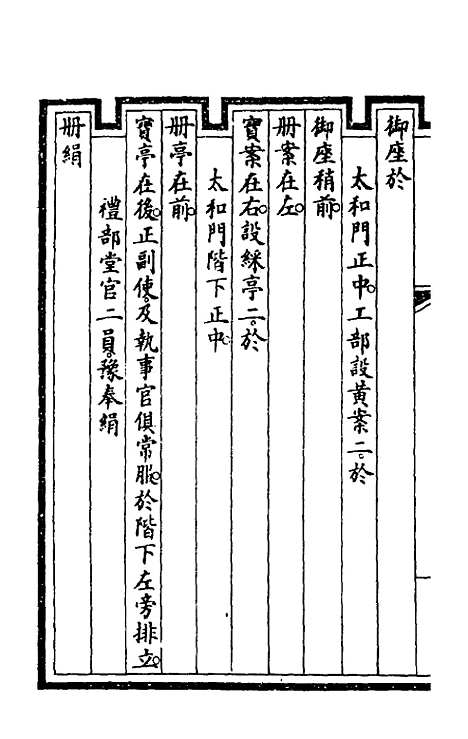 御座於
太和門正中。工部設黃案二。於
御座稍前。
册案在左。
寶案在右。設綵亭二。於
太和門階下正中。
册亭在前。
寶亭在後。正副使。及執事官俱常服。於階下左旁排立。
禮部堂官二員。豫奉絹
册絹